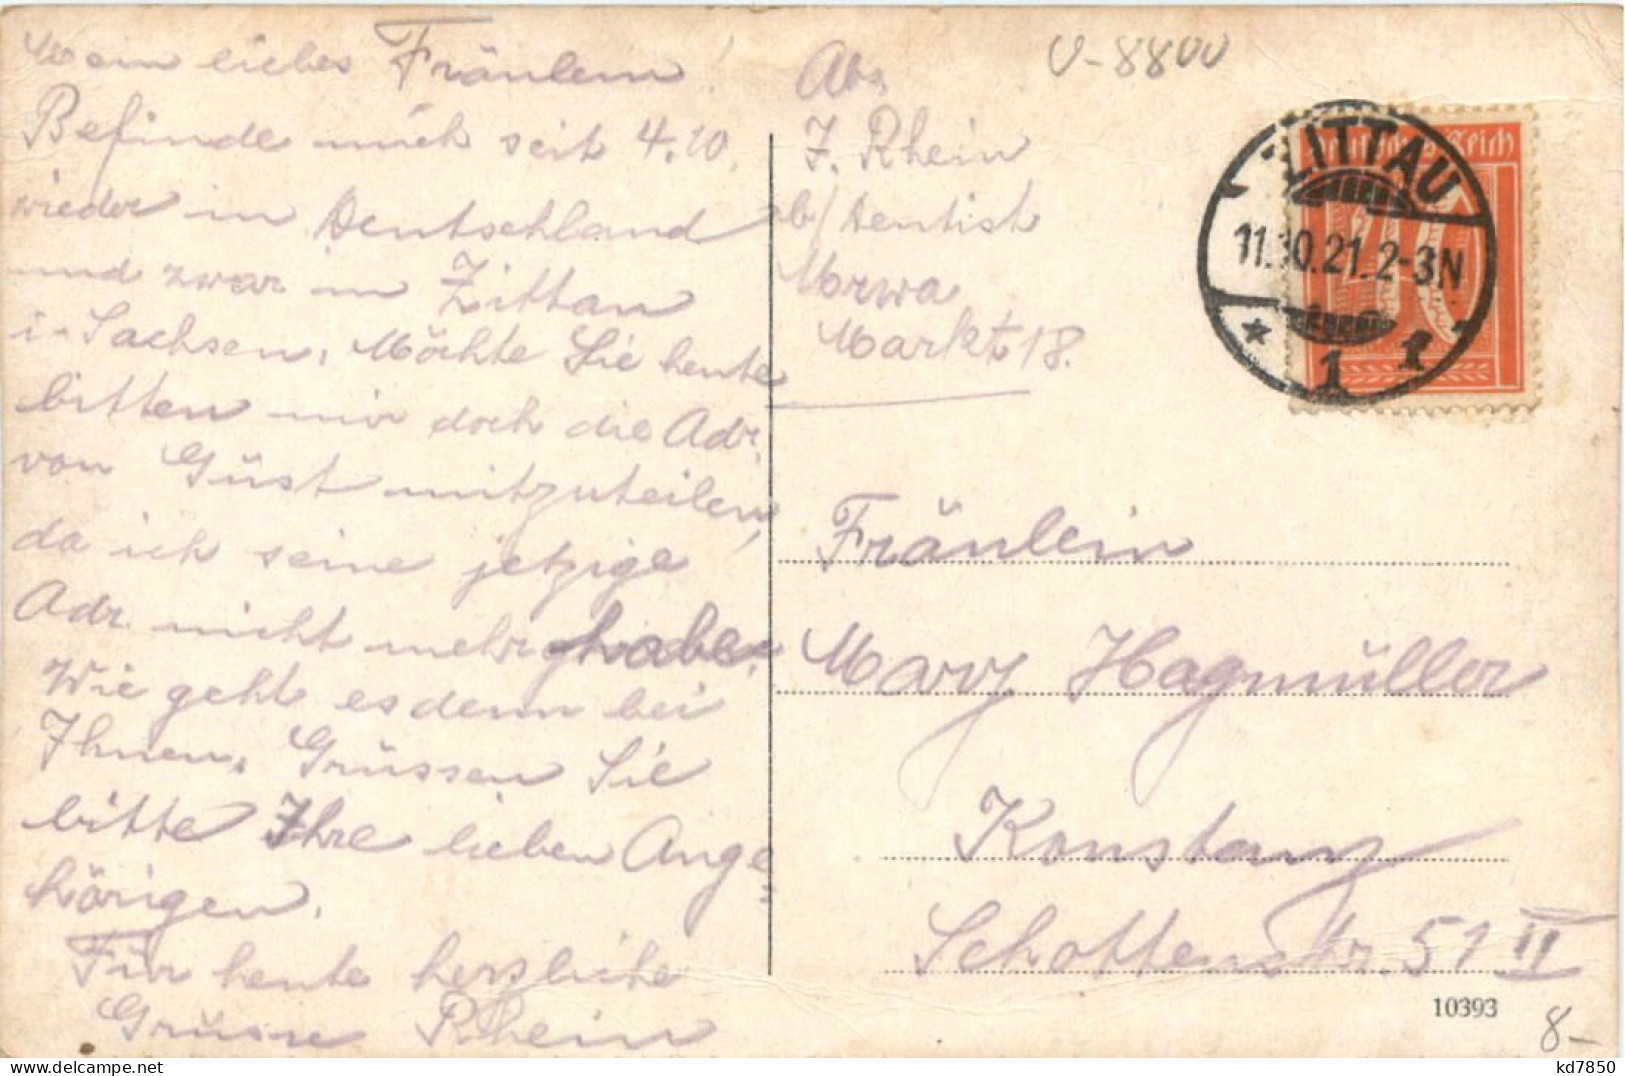 Mein liebes Fräulein!
Befinde mich seit 4.10.
wieder in Deutschland
und zwar in Zittau
i. Sachsen. Möchte Sie heute
bitten mir doch die Adr.
von Güst mitzuteilen,
da ich seine jetzige
Adr. nicht mehr habe.
Wie geht es denn bei
Ihnen. Grüssen Sie
bitte Ihre lieben Ange=
hörigen.
Für heute herzliche
Grüsse Rhein
Abs.
J. Rhein
b/ Dentist
Morwa
Markt 18.
V-8800
Deutsches Reich
ZITTAU
11.10.21.2-3N
* 1 1
Fräulein
Mary Hagmüller
Konstanz
Schottenstr. 51 II
10393
8-
kd7850